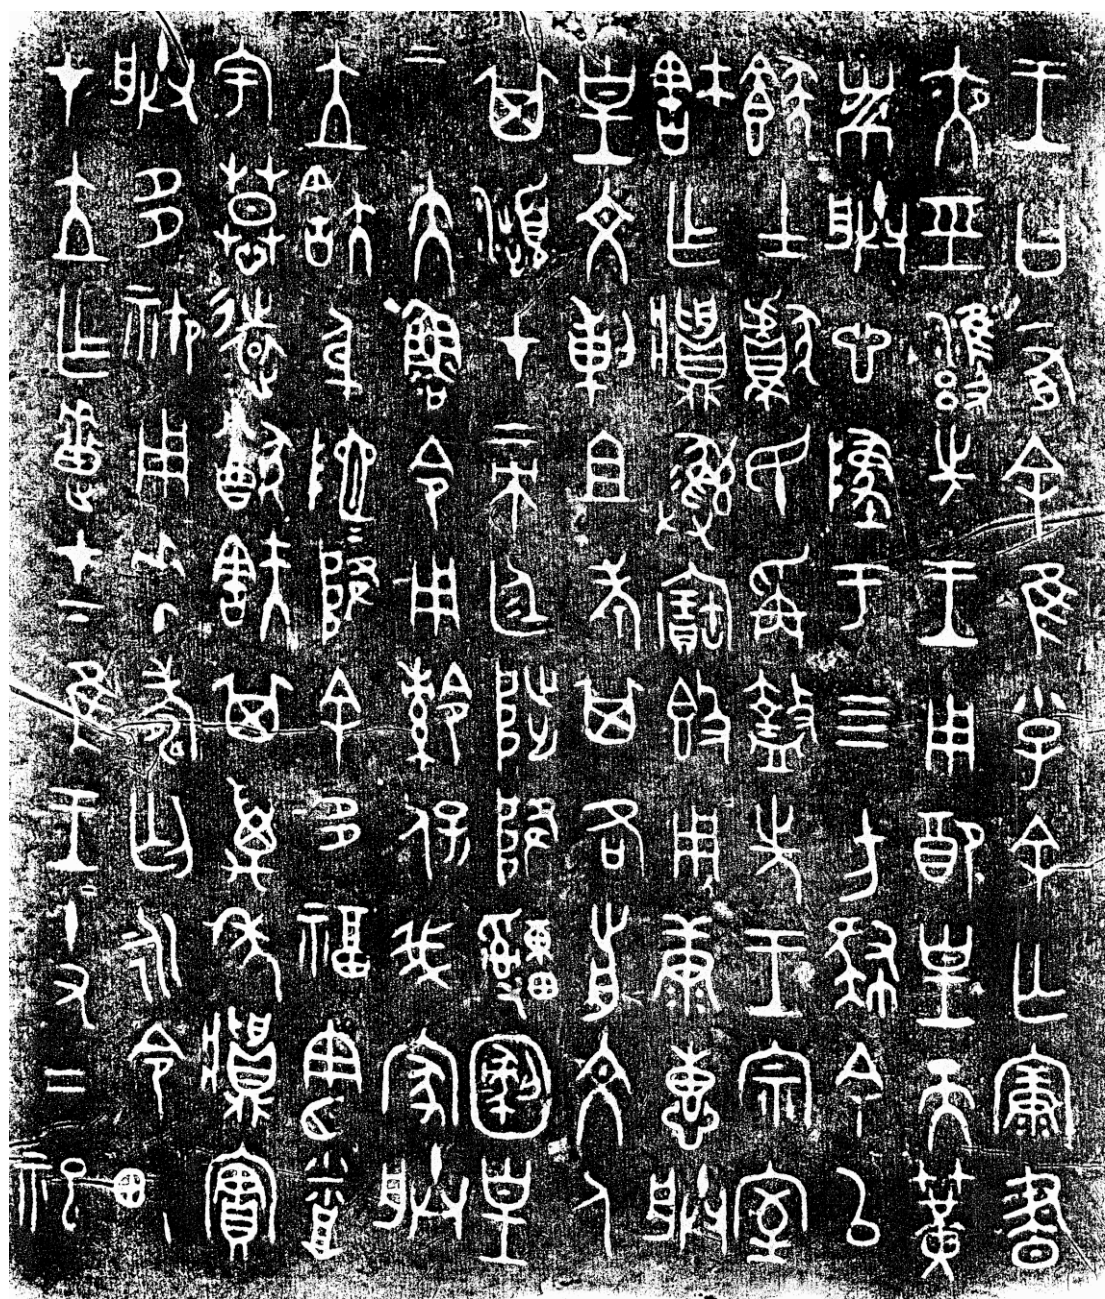 王曰有余隹小子余亡康晝
夜巠雝先王用配皇天簧
黹朕心墜于四方肆余以
𩛥士獻民爯盩先王宗室
㝬乍𩱧彝寶簋用康惠朕
皇文剌且考其各前文人
其瀕才帝廷陟降申圝皇
帝大魯令用𩛥保我家朕
立㝬身阤=降余多福憲烝
宇慕遠猷㝬其萬年𩱧實
朕多禦用𠦪壽匄永令畯
才立乍疐才下隹王十又二祀